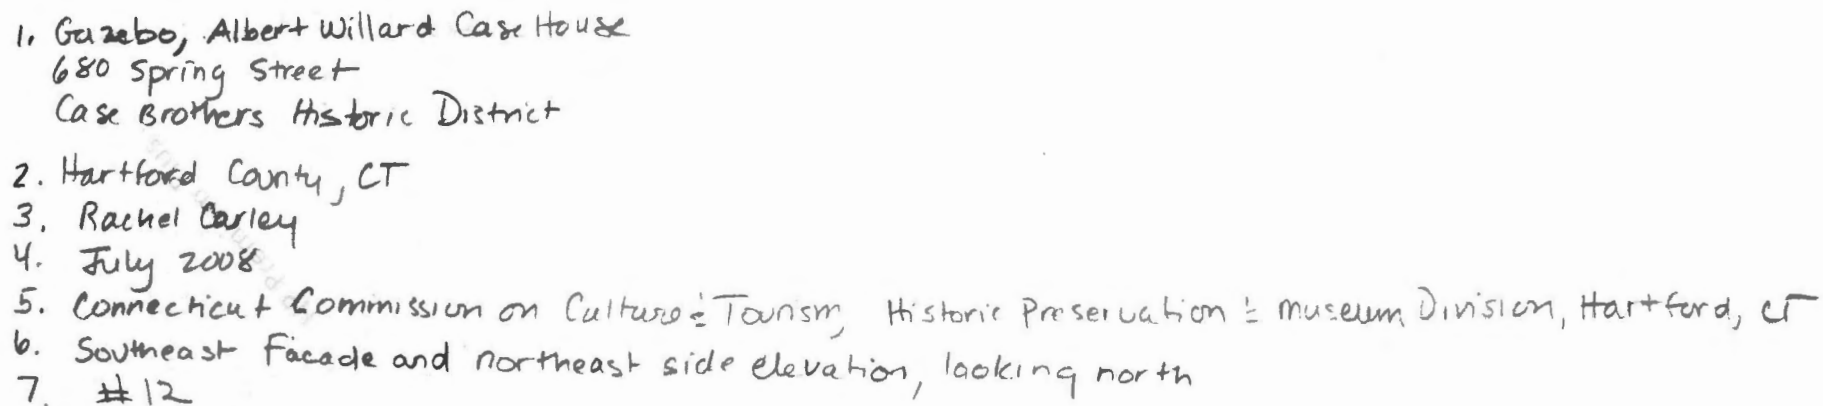 1. Gazebo, Albert Willard Case House
680 Spring Street
Case Brothers Historic District
2. Hartford County, CT
3. Rachel Carley
4. July 2008
5. Connecticut Commission on Culture & Tourism, Historic Preservation & Museum Division, Hartford, CT
6. Southeast Facade and northeast side elevation, looking north
7. #12